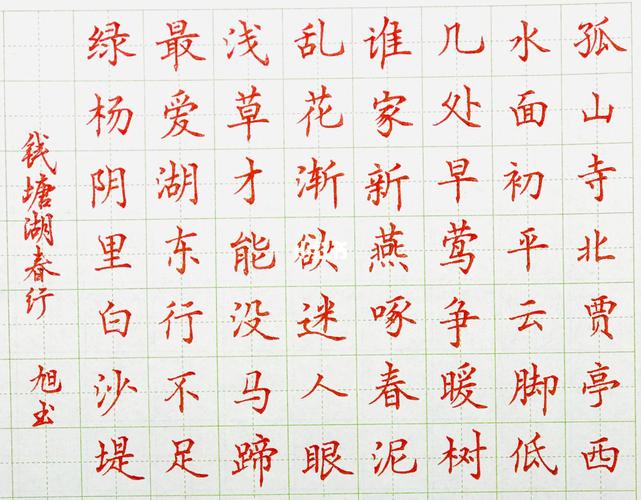 孤山寺北贾亭西
水面初平云脚低
几处早莺争暖树
谁家新燕啄春泥
乱花渐欲迷人眼
浅草才能没马蹄
最爱湖东行不足
绿杨阴里白沙堤
钱塘湖春行
旭书